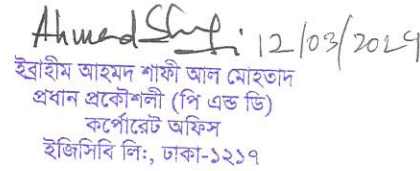 Ahmad Shafi. 12/03/2024
ইব্রাহীম আহমদ শাফী আল মোহতাদ
প্রধান প্রকৌশলী (পি এন্ড ডি)
কর্পোরেট অফিস
ইজিসিবি লি:, ঢাকা-১২১৭